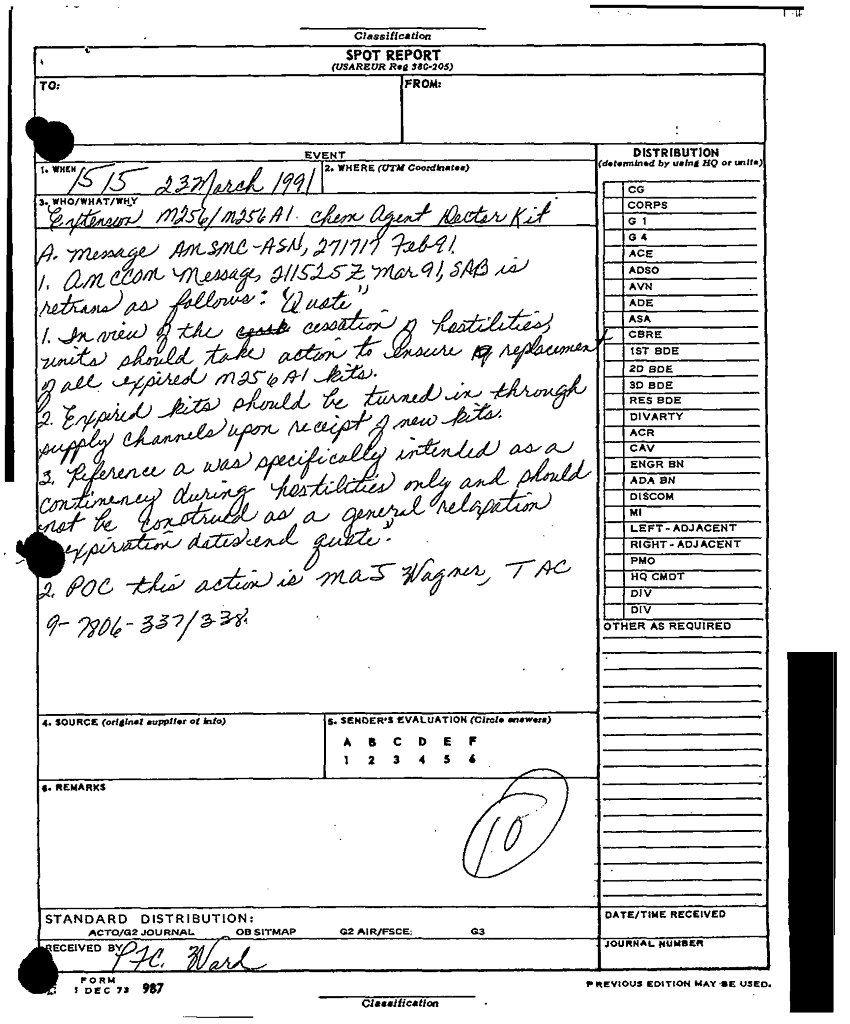 Classification
SPOT REPORT
(USAREUR Reg 380-205)
TO:
FROM:
EVENT
1. WHEN 1515 23 March 1991
2. WHERE (UTM Coordinates)
3. WHO/WHAT/WHY
Extension M256/M256A1. Chem Agent Dector Kit
A. Message AMSMC-ASN, 271717 Feb 91.
1. AMCCOM Message, 211525Z Mar 91, SAB is
retrans as follows: "Quote"
1. In view of the cessation of hostilities,
units should take action to ensure replacemen
of all expired M256A1 kits.
2. Expired kits should be turned in through
supply channels upon receipt of new kits.
3. Reference a was specifically intended as a
continency during hostilities only and should
not be construed as a general relaxation
expiration dates end quote."
2. POC this action is MAJ Wagner, TAC
9-7806-337/338.
4. SOURCE (original supplier of info)
5. SENDER'S EVALUATION (Circle answers)
A B C D E F
1 2 3 4 5 6
6. REMARKS
10
STANDARD DISTRIBUTION:
ACTO/G2 JOURNAL OB SITMAP G2 AIR/FSCE: G3
RECEIVED BY PFC. Ward
DISTRIBUTION
(determined by using HQ or units)
CG
CORPS
G 1
G 4
ACE
ADSO
AVN
ADE
ASA
CBRE
1ST BDE
2D BDE
3D BDE
RES BDE
DIVARTY
ACR
CAV
ENGR BN
ADA BN
DISCOM
MI
LEFT-ADJACENT
RIGHT-ADJACENT
PMO
HQ CMDT
DIV
DIV
OTHER AS REQUIRED
DATE/TIME RECEIVED
JOURNAL NUMBER
FORM
1 DEC 73 987
PREVIOUS EDITION MAY BE USED.
Classification